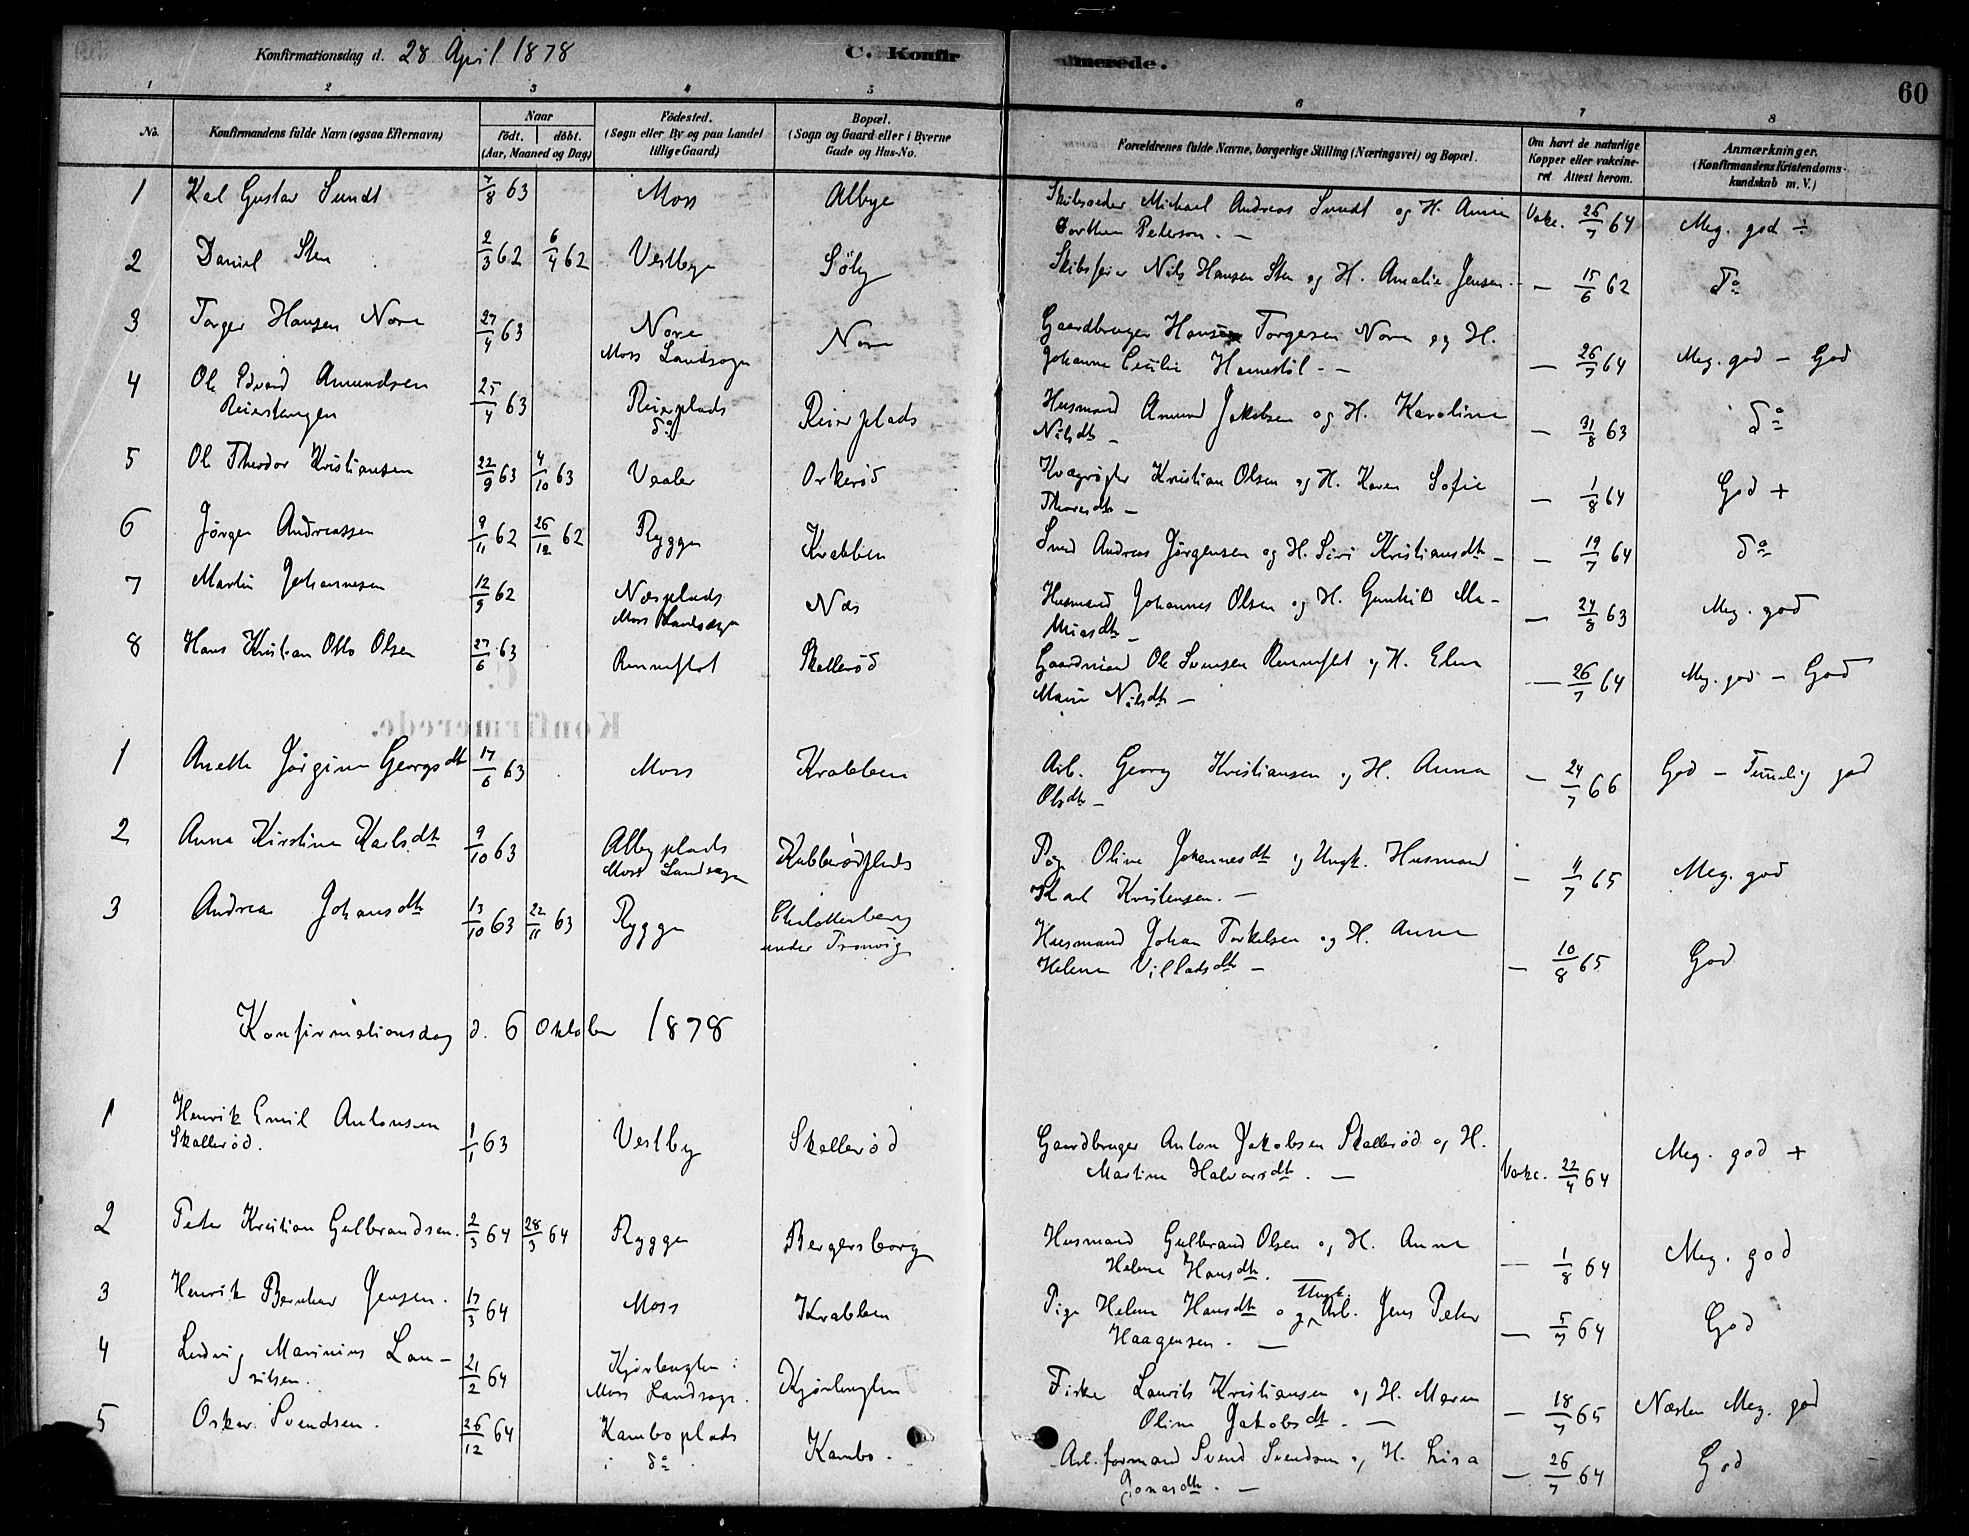 Konfirmationsdag d. 28 April 1878 C. Konfirmerede. 60
1 2 3 4 5 6 7 8
No. Konfirmandens fulde Navn (ogsaa Efternavn) Naar födt. döbt. (Aar, Maaned og Dag) Födested. (Sogn eller By og paa Landet tillige Gaard) Bopæl. (Sogn og Gaard eller i Byerne Gade og Hus-No. Forældrenes fulde Navne, borgerlige Stilling (Næringsvei) og Bopæl. Om havt de naturlige Kopper eller vakcineret. Attest herom. Anmærkninger. (Konfirmandens Kristendomskundskab m. V.)
1 Kal Gustav Sundt 7/8 63 Moss Albye Michael Andreas Sundt og H. Anne Vakc. 26/7 64 Meg. god ÷
Dorthea Peterson. —
2 Daniel Sten 2/3 62 6/4 62 Vestbye Söby Nils Hansen Sten og H. Amalie Jensen. — 15/6 62 do
3 Torger Hansen Nore 27/4 63 Nore Nore Gaardbruger Hans Torgersen Nore og H.
Moss Landsogn Johanne Cecilie — — 26/7 64 Meg. god — God
4 Ole Edvard Amundsen 25/4 63 Reierplads Reierplads Husmand Amund Jakobsen og H. Karoline
Reierstangen do Nilsdtr — — 31/8 63 do
5 Ole Theodor Kristiansen 22/9 63 4/10 63 Vaaler Orkeröd Kvægrögter Kristian Olsen og H. Karen Sofie
— — 1/8 64 God +
6 Jörgen Andreassen 9/11 62 26/12 62 Rygge Krabben Smed Andreas Jörgensen og H. Siri Kristiansdtr — — 19/7 64 do
7 Martin Johannesen 12/9 62 Næsplads Næs Husmand Johannes Olsen og H. Gunhild Ma-
Moss Landsogn — — 24/8 63 Meg. god
8 Hans Kristian Otto Olsen 27/6 63 Skalleröd Gaardmand Ole Svensen og H. Elen
Marie Nilsdtr — — 26/7 64 Meg. god — God
1 Anette Jörgine Georgsdtr 17/6 63 Moss Krabben Arb. Georg Kristiansen og H. Anna
Olsdtr — — 24/7 66 God — Temelig god
2 Anna Kirstine Karlsdtr 9/10 63 Alby plads Kubberödplads Pige Oline Johannesdtr og Ungk. Husmand
Moss Landsogn Karl Kristensen. — — 11/7 65 Meg. god
3 Andrea Johansdtr 13/10 63 22/11 63 Rygge Charlottenberg Husmand Johan Torkelsen og H. Anna
under Tronvig Helene Villadsdtr — — 10/8 65 God
Konfirmationsdag d. 6 Oktober 1878
1 Henrik Emil Antonsen
Skalleröd. 1/1 63 Vestby Skalleröd Gaardbruger Anton Jakobsen Skalleröd og H.
Martine Halvorsdtr. — Vakc. 22/4 64 Meg. god +
2 Peter Kristian Gulbrandsen. 2/3 64 28/3 64 Rygge Bergersborg Husmand Gulbrand Olsen og H. Anne
Helene Hansdtr. — 1/8 64 Meg. god
3 Henrik Bernhar Jensen. 17/3 64 Moss Krabben Pige Helene Hansdtr og Ungk. Arb. Jens Peter
Haagensen. — — 5/7 64 God
4 Ludvig Marinius Lau-
ritsen. 21/2 64 Kjörlenglen i Kjörlenglen Laurits Kristiansen og H. Maren
Moss Landsogn. Oline Jakobsdtr. — — 18/7 65 Næsten Meg. god
5 Oskar Svendsen. 26/12 64 Kamboplads Kambo. Arb. formand Svend Svendsen og H. Lisa
i do. Jonasdtr. — — 26/7 64 God